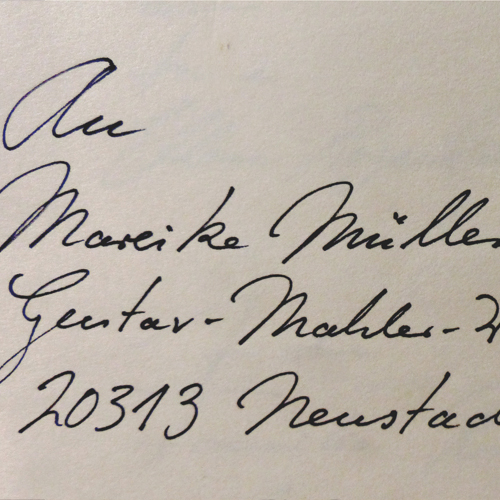 An
Mareike Müller
Gustav-Mahler-
20313 Neustad